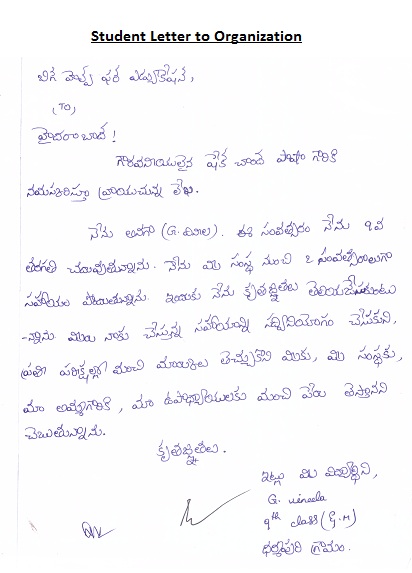 Student Letter to Organization
బిగ్ హెల్ప్ ఫర్ ఎడ్యుకేషన్,
(TO)
హైదరాబాద్ !
గౌరవనీయులైన షేక్ చాంద్ పాషా గారికి
నమస్కరిస్తూ వ్రాయుచున్న లేఖ.
నేను అనగా (G. వినీల). ఈ సంవత్సరం నేను 9వ
తరగతి చదువుతున్నాను. నేను మీ సంస్థ నుంచి 2 సంవత్సరాలుగా
సహాయం పొందుతున్నాను. ఇందుకు నేను కృతజ్ఞతలు తెలియజేసుకుంటు
-న్నాను మీరు నాకు చేస్తున్న సహాయాన్ని సద్వినియోగం చేసుకుని,
ప్రతి పరీక్షల్లో మంచి మార్కులు తెచ్చుకొని మీకు, మీ సంస్థకు,
మా అమ్మగారికి, మా ఉపాధ్యాయులకు మంచి పేరు తెస్తానని
చెబుతున్నాను.
కృతజ్ఞతలు.
ఇట్లు మీ విద్యార్థిని,
G. vineela
9th class (G.M)
ధర్మపురి గ్రామం.